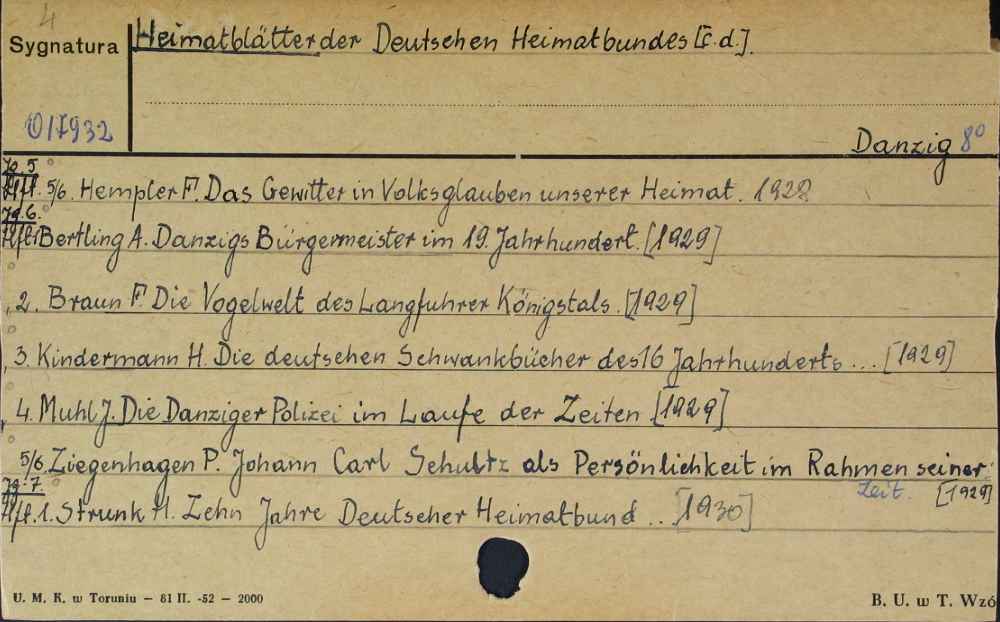 4
Sygnatura Heimatblätter der Deutschen Heimatbundes [c.d.].
017932
Danzig 8°
Jg. 5
Hft. 5/6. Hempler F. Das Gewitter in Volksglauben unserer Heimat. 1928
Jg. 6.
Hft. 1 Bertling A. Danzigs Bürgermeister im 19. Jahrhundert. [1929]
„ 2. Braun F. Die Vogelwelt des Langfuhrer Königstals. [1929]
„ 3. Kindermann H. Die deutschen Schwankbücher des 16 Jahrhunderts ... [1929]
„ 4. Muhl J. Die Danziger Polizei im Laufe der Zeiten [1929]
5/6. Ziegenhagen P. Johann Carl Schultz als Persönlichkeit im Rahmen seiner
Zeit. [1929]
Jg. 7.
Hft. 1. Strunk H. Zehn Jahre Deutscher Heimatbund ... [1930]
U. M. K. w Toruniu — 81 II. -52 — 2000 B. U. w T. Wzó